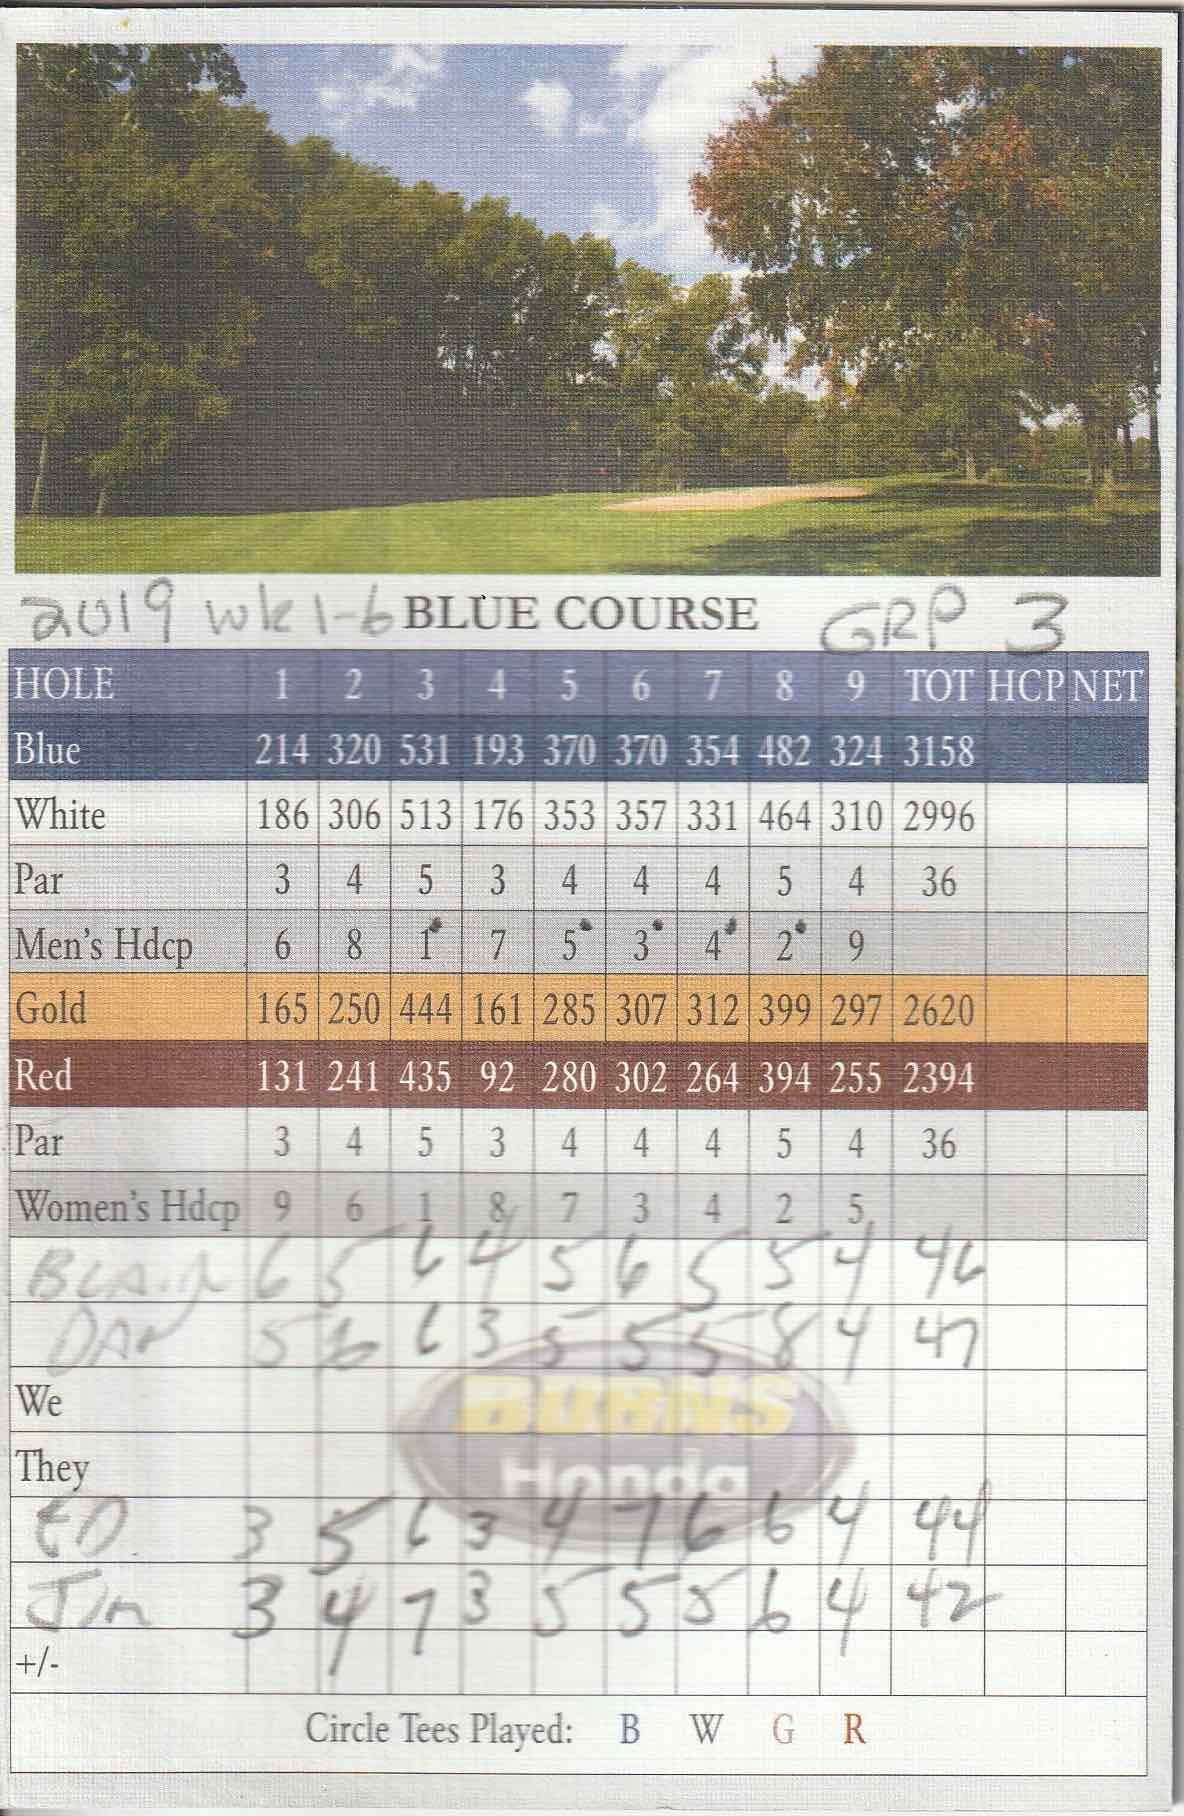 2019 wk 1-6 BLUE COURSE GRP 3
HOLE 1 2 3 4 5 6 7 8 9 TOT HCP NET
Blue 214 320 531 193 370 370 354 482 324 3158
White 186 306 513 176 353 357 331 464 310 2996
Par 3 4 5 3 4 4 4 5 4 36
Men's Hdcp 6 8 1 7 5 3 4 2 9
Gold 165 250 444 161 285 307 312 399 297 2620
Red 131 241 435 92 280 302 264 394 255 2394
Par 3 4 5 3 4 4 4 5 4 36
Women's Hdcp 9 6 1 8 7 3 4 2 5
BLAIR 6 5 6 4 5 6 5 5 4 46
DAN 5 6 6 3 5 5 5 8 4 47
We
BURNS
They
Honda
ED 3 5 6 3 4 7 6 6 4 44
Jim 3 4 7 3 5 5 5 6 4 42
+/-
Circle Tees Played: B W G R